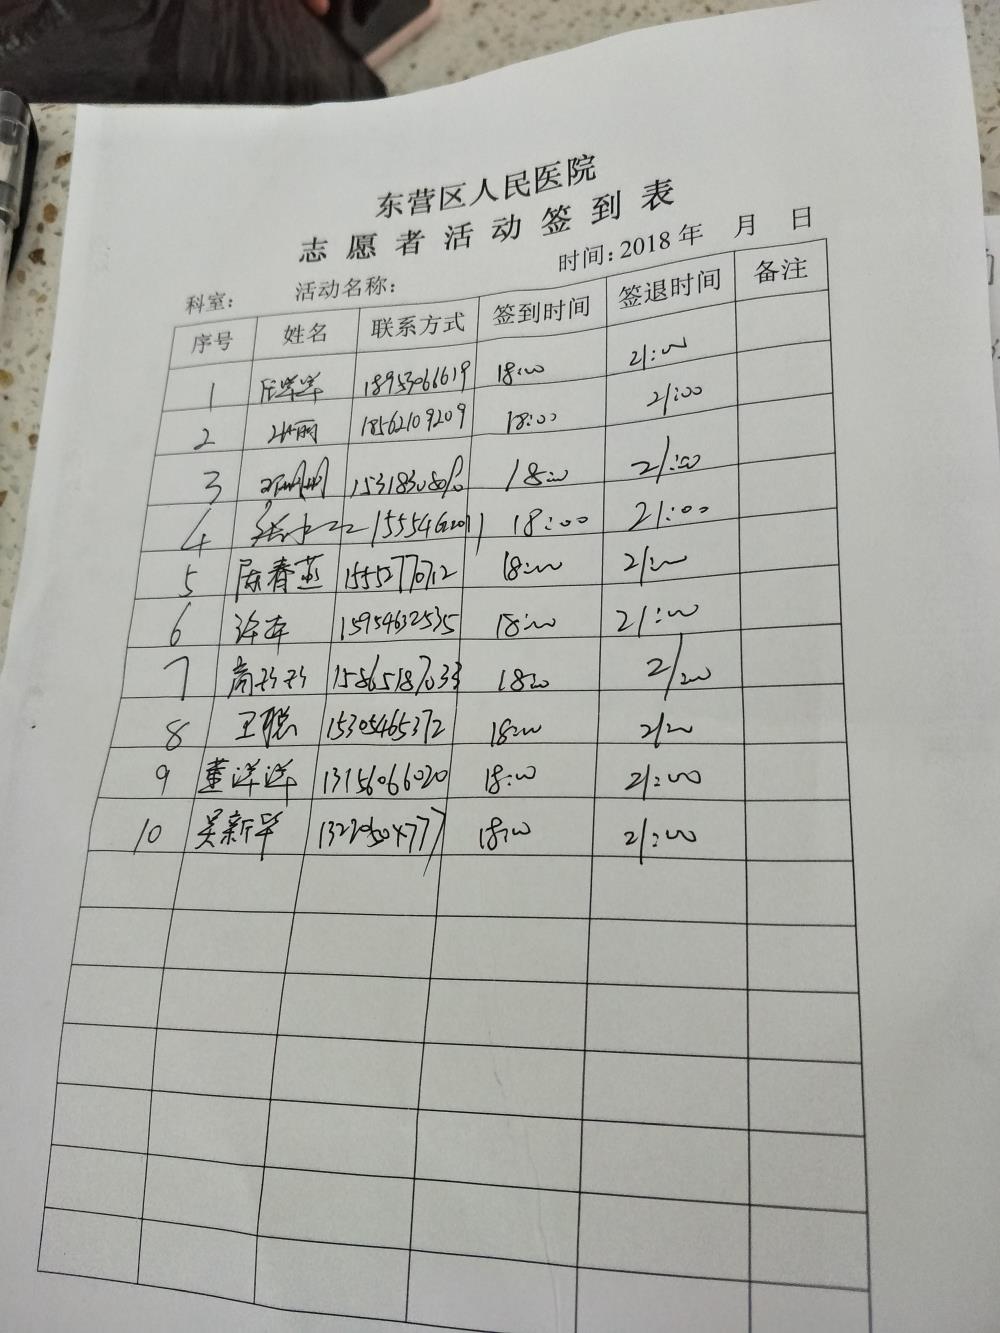 东营区人民医院
志愿者活动签到表
科室： 活动名称： 时间：2018年 月 日
序号 姓名 联系方式 签到时间 签退时间 备注
1 18953066619 18:00 21:00
2 18562109209 18:00 21:00
3 18:00 21:00
4 18:00 21:00
5 陈春燕 15552770712 18:00 21:00
6 15954632535 18:00 21:00
7 商 15865187033 1800 2100
8 王聪 15305465372 18:00 2100
9 董洋洋 13156066020 18:00 21:00
10 吴新华 18:00 21:00